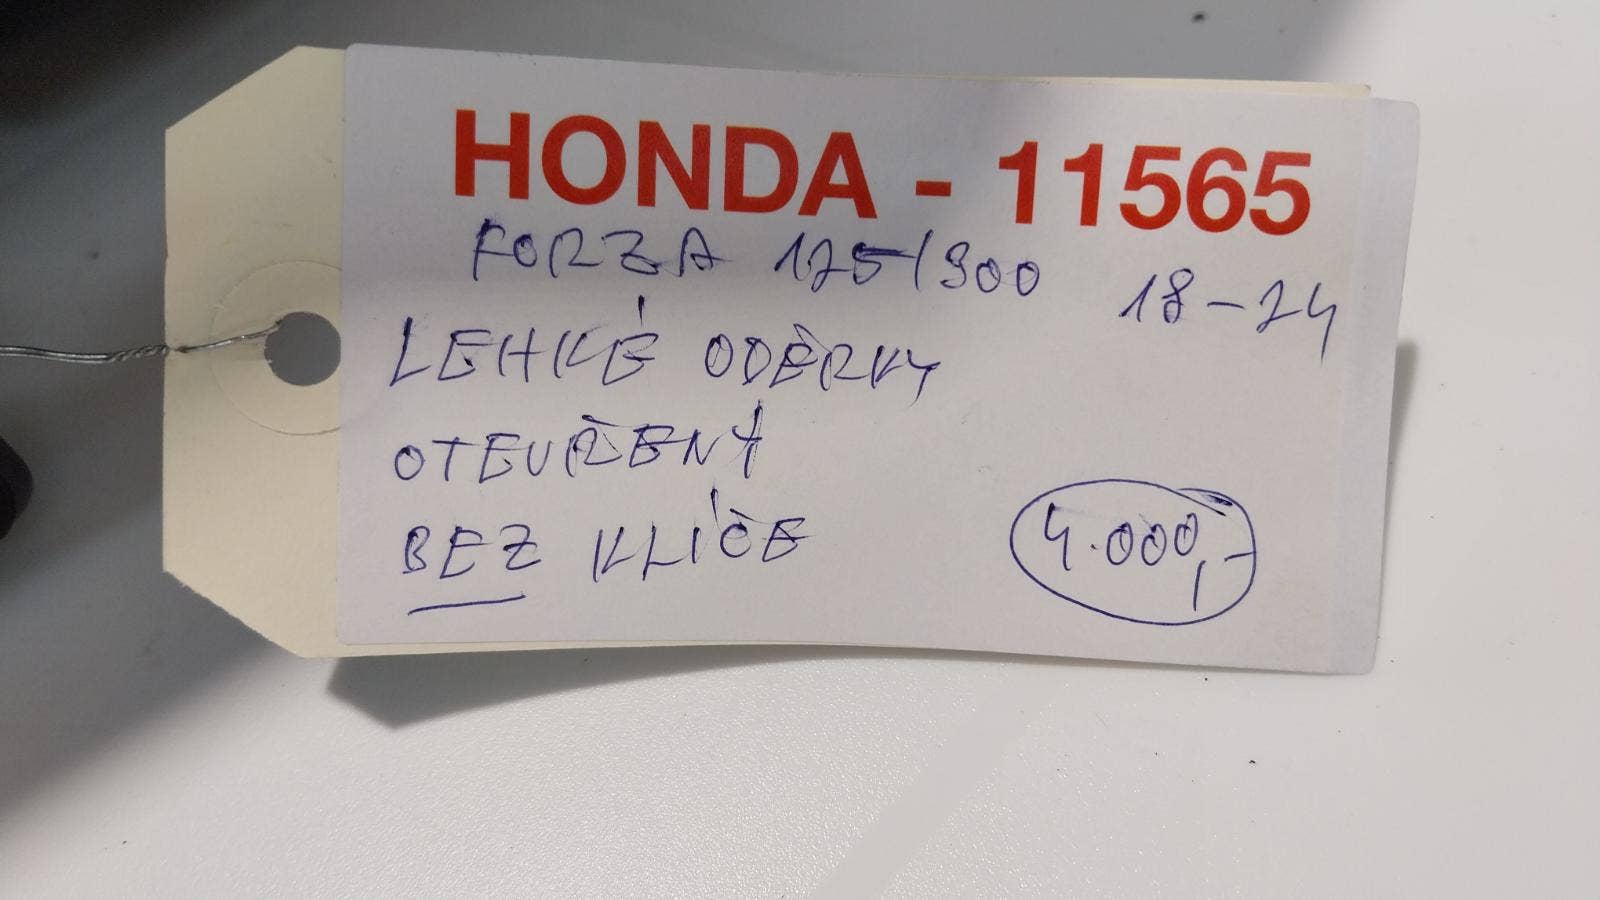 HONDA - 11565
FORZA 125/300 18-24
LEHKÉ ODĚRKY
OTEVŘENÝ
BEZ KLÍČE
4.000,-